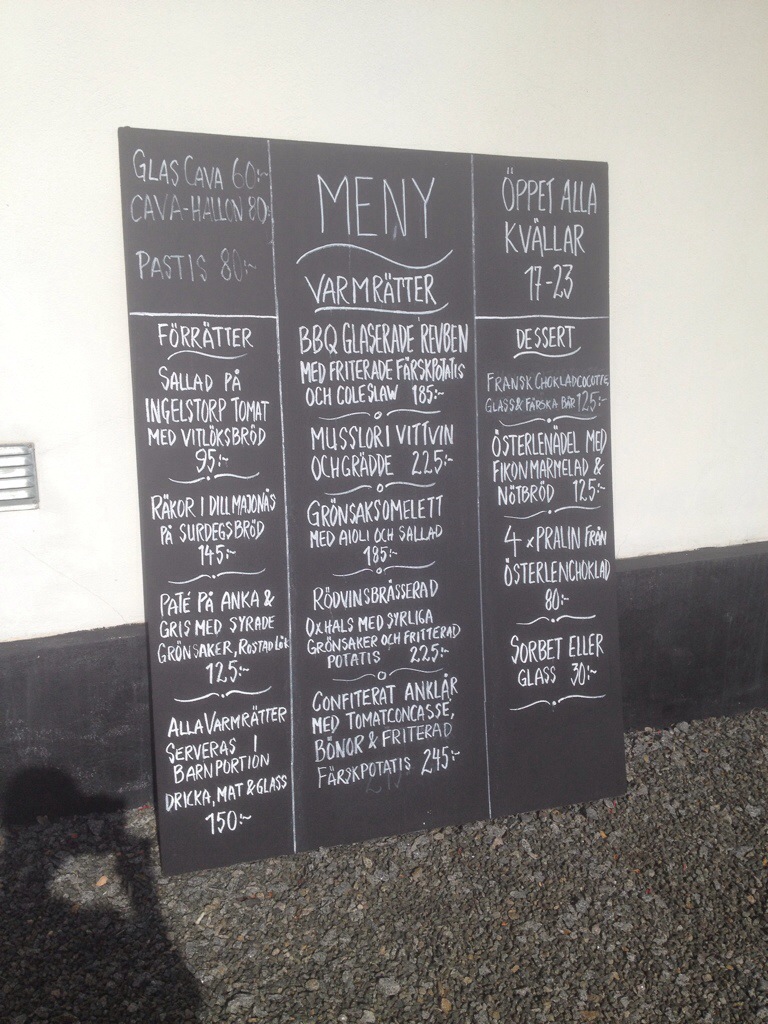 GLAS CAVA 60:-
CAVA-HALLON 80:-
PASTIS 80:-
FÖRRÄTTER
SALLAD PÅ
INGELSTORP TOMAT
MED VITLÖKSBRÖD
95:-
RÄKOR I DILLMAJONÄS
PÅ SURDEGSBRÖD
145:-
PATÉ PÅ ANKA &
GRIS MED SYRADE
GRÖNSAKER, ROSTAD LÖK
125:-
ALLA VARMRÄTTER
SERVERAS I
BARNPORTION
DRICKA, MAT & GLASS
150:-
MENY
VARMRÄTTER
BBQ GLASERADE REVBEN
MED FRITERADE FÄRSKPOTATIS
OCH COLESLAW 185:-
MUSSLOR I VITTVIN
OCH GRÄDDE 225:-
GRÖNSAKSOMELETT
MED AIOLI OCH SALLAD
185:-
RÖDVINSBRÄSSERAD
OXHALS MED SYRLIGA
GRÖNSAKER OCH FRITTERAD
POTATIS 225:-
CONFITERAT ANKLÅR
MED TOMATCONCASSE,
BÖNOR & FRITERAD
FÄRSKPOTATIS 245:-
ÖPPET ALLA
KVÄLLAR
17-23
DESSERT
FRANSK CHOKLADCOCOTTE,
GLASS & FÄRSKA BÄR 125:-
ÖSTERLENÄDEL MED
FIKONMARMELAD &
NÖTBRÖD 125:-
4 x PRALIN FRÅN
ÖSTERLENCHOKLAD
80:-
SORBET ELLER
GLASS 30:-